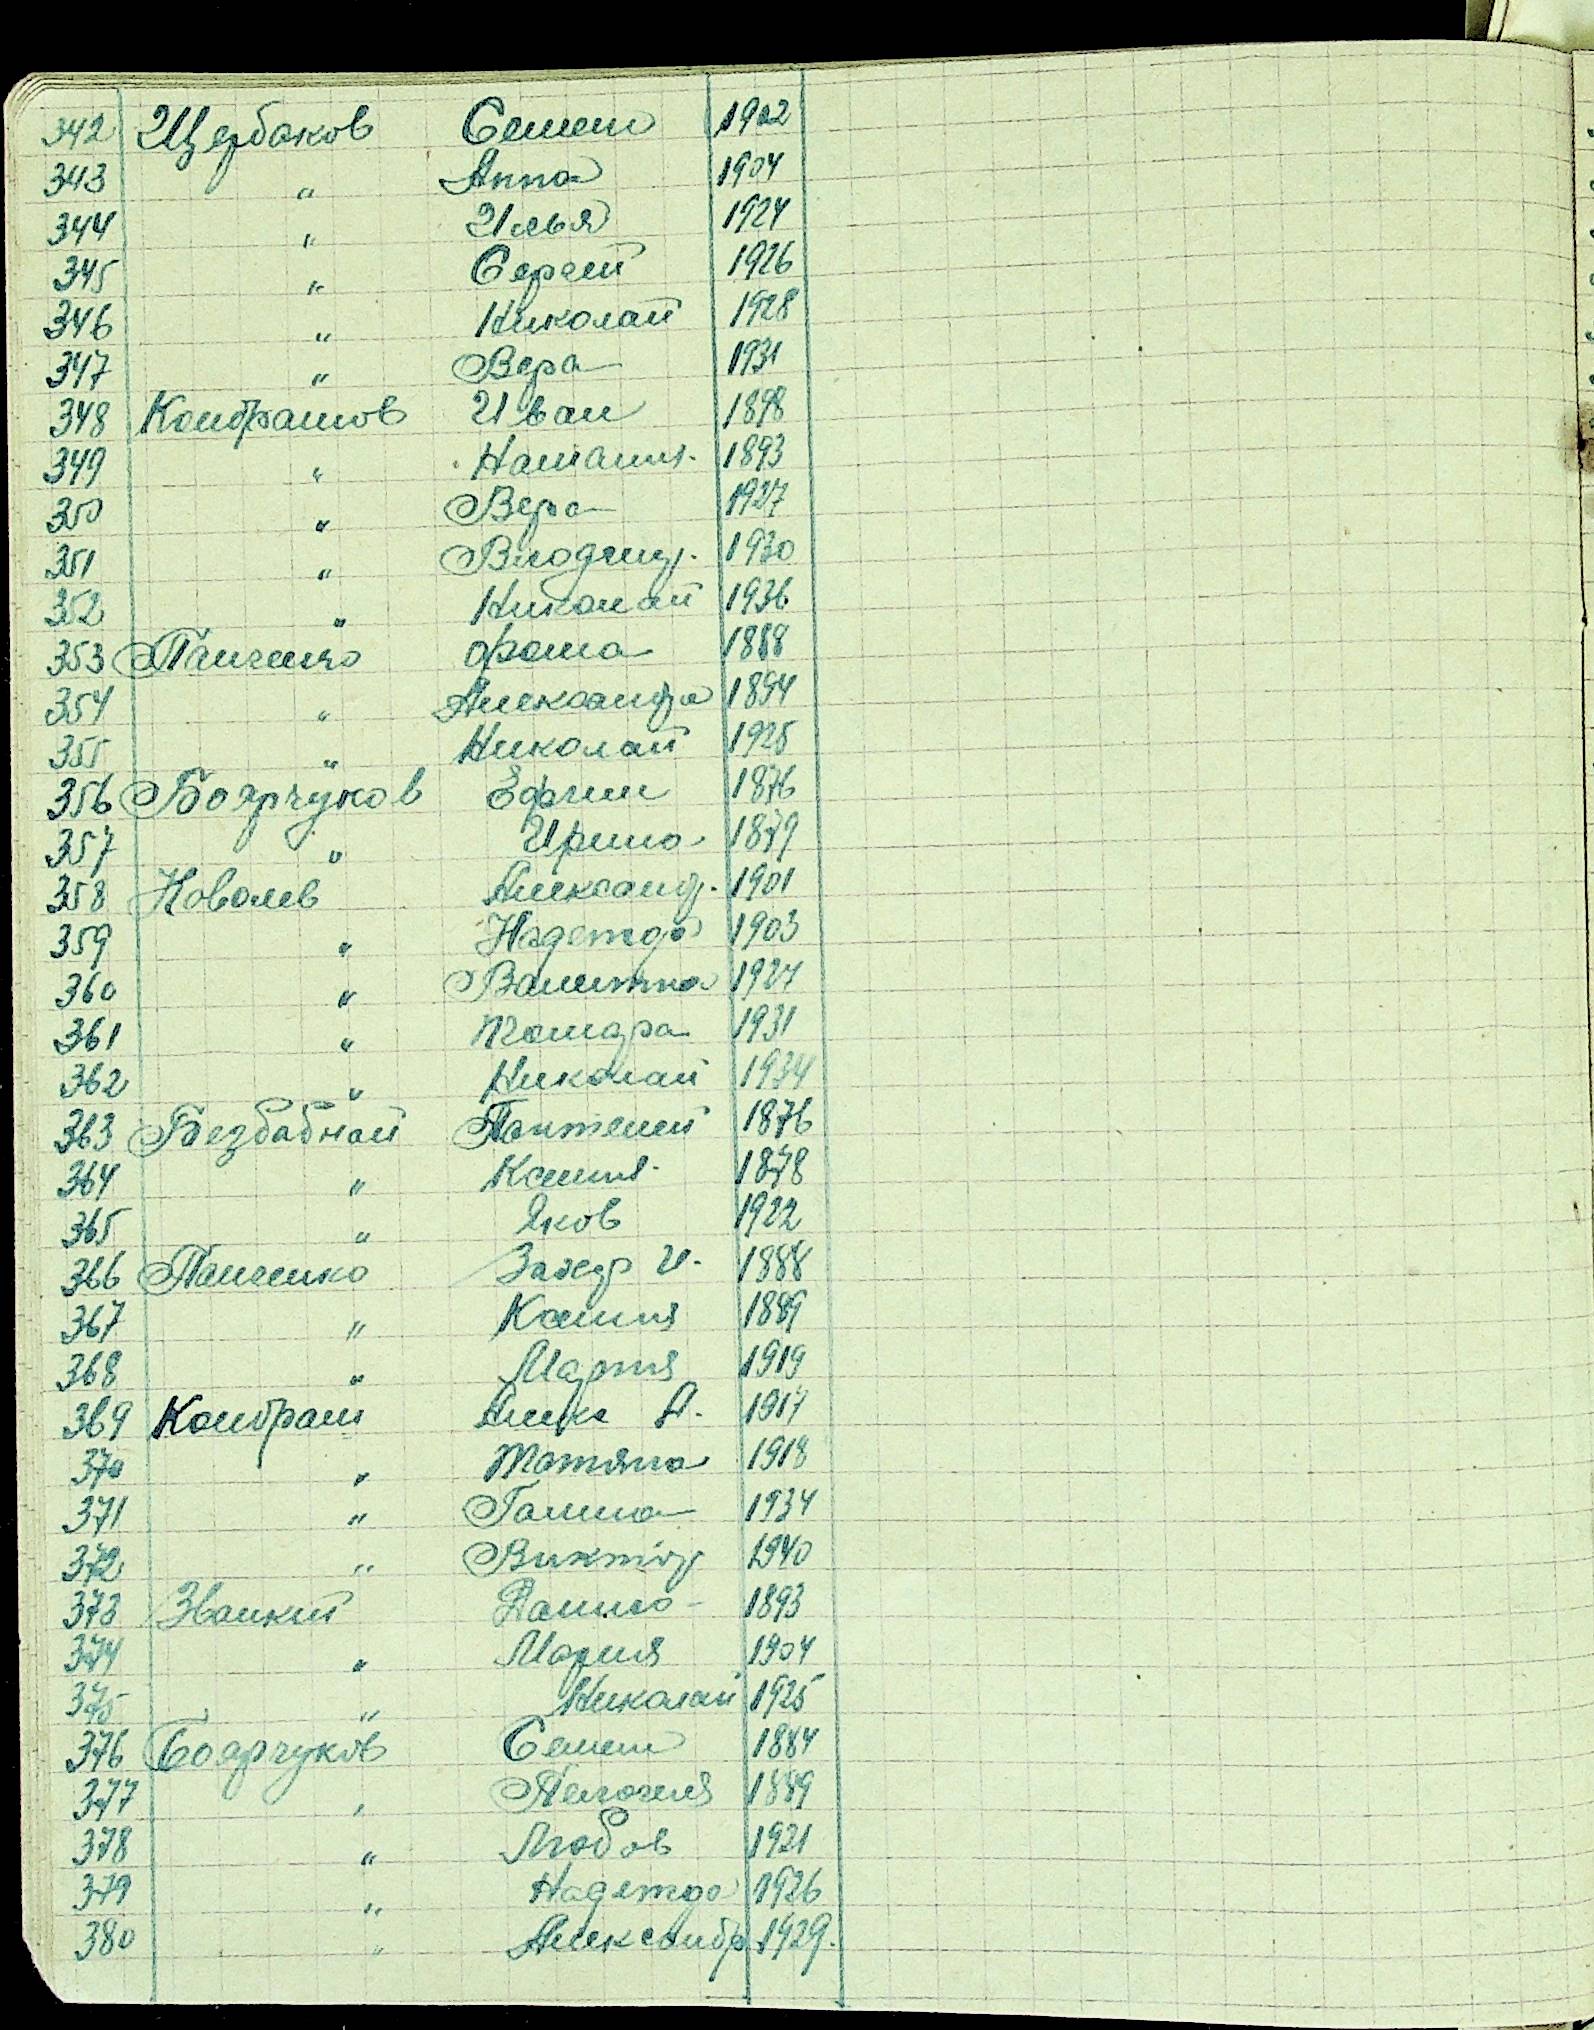 342 Щербаков Семен 1902
343 " Анна 1904
344 " Илья 1924
345 " Сергей 1926
346 " Николай 1928
347 " Вера 1931
348 Кондрашов Иван 1898
349 " Наталия 1893
350 " Вера 1927
351 " Владимир. 1930
352 " Николай 1936
353 Панченко Фома 1888
354 " Александра 1894
355 " Николай 1925
356 Боярчуков Ефим 1876
357 " Ирина 1879
358 Ковалев Александр. 1901
359 " Надежда 1903
360 " Валентина 1927
361 " Тамара 1931
362 " Николай 1934
363 Безбабной Пантелей 1876
364 " Ксения 1878
365 " Яков 1922
366 Панченко Захар И. 1888
367 " Ксения 1889
368 " Мария 1919
369 Кондраш А. 1917
370 " Татяна 1918
371 " Галина 1934
372 " Виктор 1940
373 Званкий Данило 1893
374 " Мария 1904
375 " Николай 1925
376 Боярчуков Семен 1884
377 " Пелогия 1889
378 " Любов 1921
379 " Надежда 1926
380 " Александр 1929.